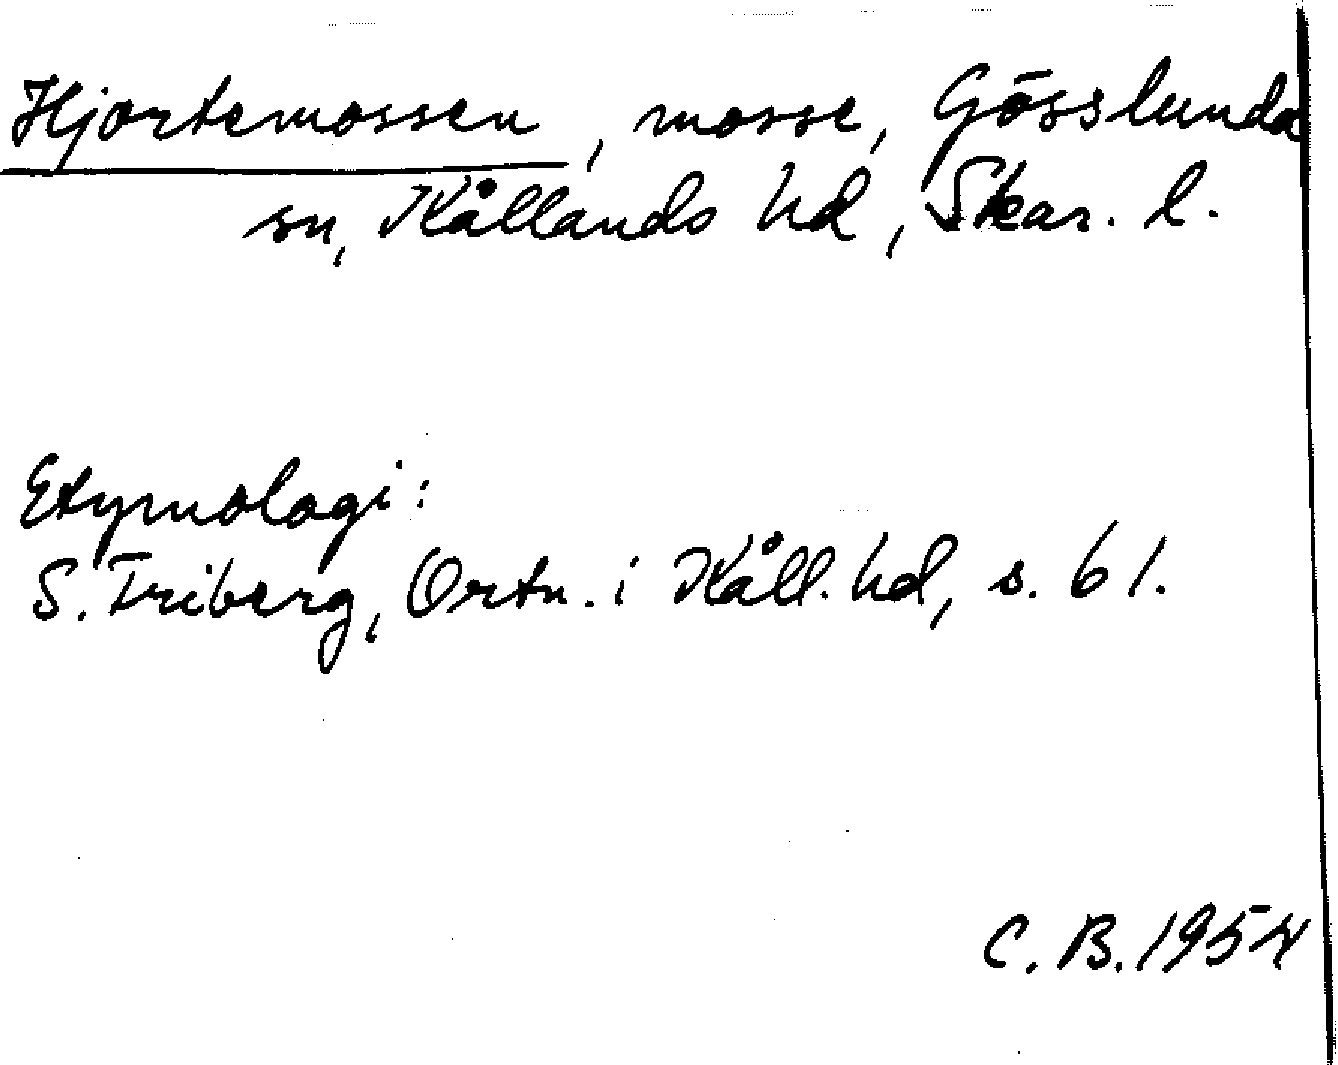 Hjortemossen, mosse, Gösslunda
sn, Kållands hd, Skar. l.
Etymologi:
S. Friberg, Ortn. i Kåll. hd, s. 61.
C. B. 1954